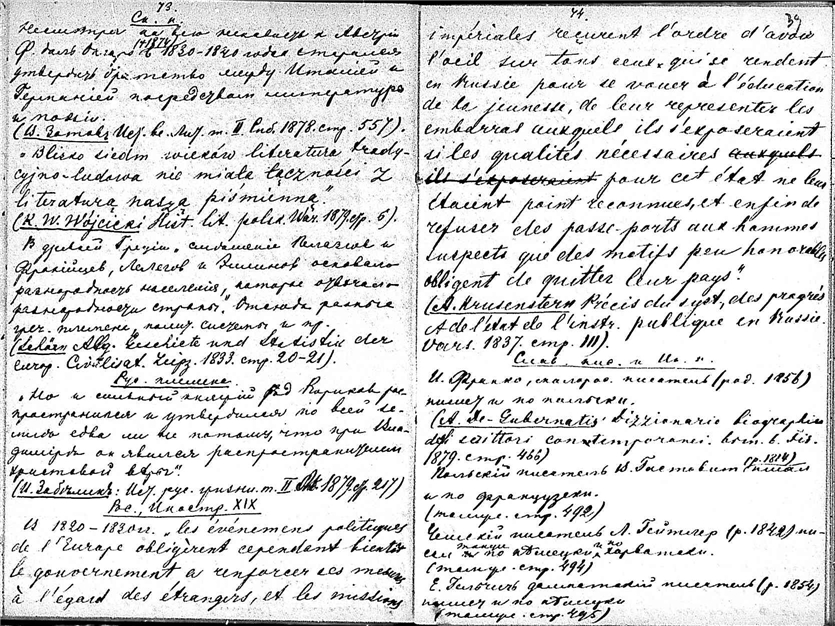 73.
Ск. н.
Несмотря на всю ненависть к Австріи
Ф. 1820–1840 года старался
утвердить братство между Италіей и
Германіей посредствомъ литературы
и поэзіи.
(В. Зотовъ, Ист. вс. лит. т. II Спб. 1878. стр. 557).
„Blisko siedm wieków literatura trady-
cyjno-ludowa nie miała łączności z
literaturą naszą piśmienną".
(K. W. Wójcicki Hist. lit. polsk. War. стр. 6).
Въ древней Греціи „смѣшеніе Пеласговъ и
Фракійцевъ, Лелеговъ и Эллиновъ основало
разнородность населенія, которое отвѣчало
разнородности страны". Отсюда разность
греч. племенъ, системы и пр.
Allg. Geschichte und Statistik der
europ. Civilisat. Leipz. 1833. стр. 20–21).
Рус. племена.
„Но и сильный княжій родъ Рюриковъ рас-
пространился и утвердился по всей зе-
млѣ едва ли не потому, что при Вла-
димірѣ онъ явился распространителемъ
Христовой вѣры".
(И. Забѣлинъ: Ист. рус. жизни. т. II М. 1879. стр. 217)
Рос., Иностр. XIX
Въ 1820–1830 гг. „les événemens politiques
de l'Europe obligèrent cependant bientôt
le gouvernement a renforcer ses mesures
à l'égard des étrangers, et les missions
74.
39
impériales reçurent l'ordre d'avoir
l'oeil sur tous ceux, qui se rendent
en Russie pour se vouer à l'éducation
de la jeunesse, de leur representer les
embarras auxquels ils s'exposeraient
si les qualités nécessaires auxquels
ils s'exposeraient pour cet état ne leur
étaient point reconnues, et enfin de
refuser des passe-ports aux hommes
suspects que des motifs peu honorables
obligent de quitter leur pays".
(A. Krusenstern Précis du syst., des progrès
et de l'état de l'instr. publique en Russie.
Vars. 1837. стр. III).
Слав. пис. и Ин. н.
И. Франко, малорос. писатель (род. 1856)
пишетъ и по польски.
(A. De-Gubernatis: Dizzionario biographico
degl scittori contemporanei. Fir.
1879. стр. 466)
Польскій писатель В. Гастовттъ (р. 1814) писалъ
и по французски.
(тамже. стр. 492)
Чешскій писатель Л. Гейтлеръ (р. 1842) пи-
салъ также по нѣмецки и по хорватски.
(тамже. стр. 494)
Е. Гельчичъ далматскій писатель (р. 1854)
пишетъ и по нѣмецки
(тамже. стр. 495)